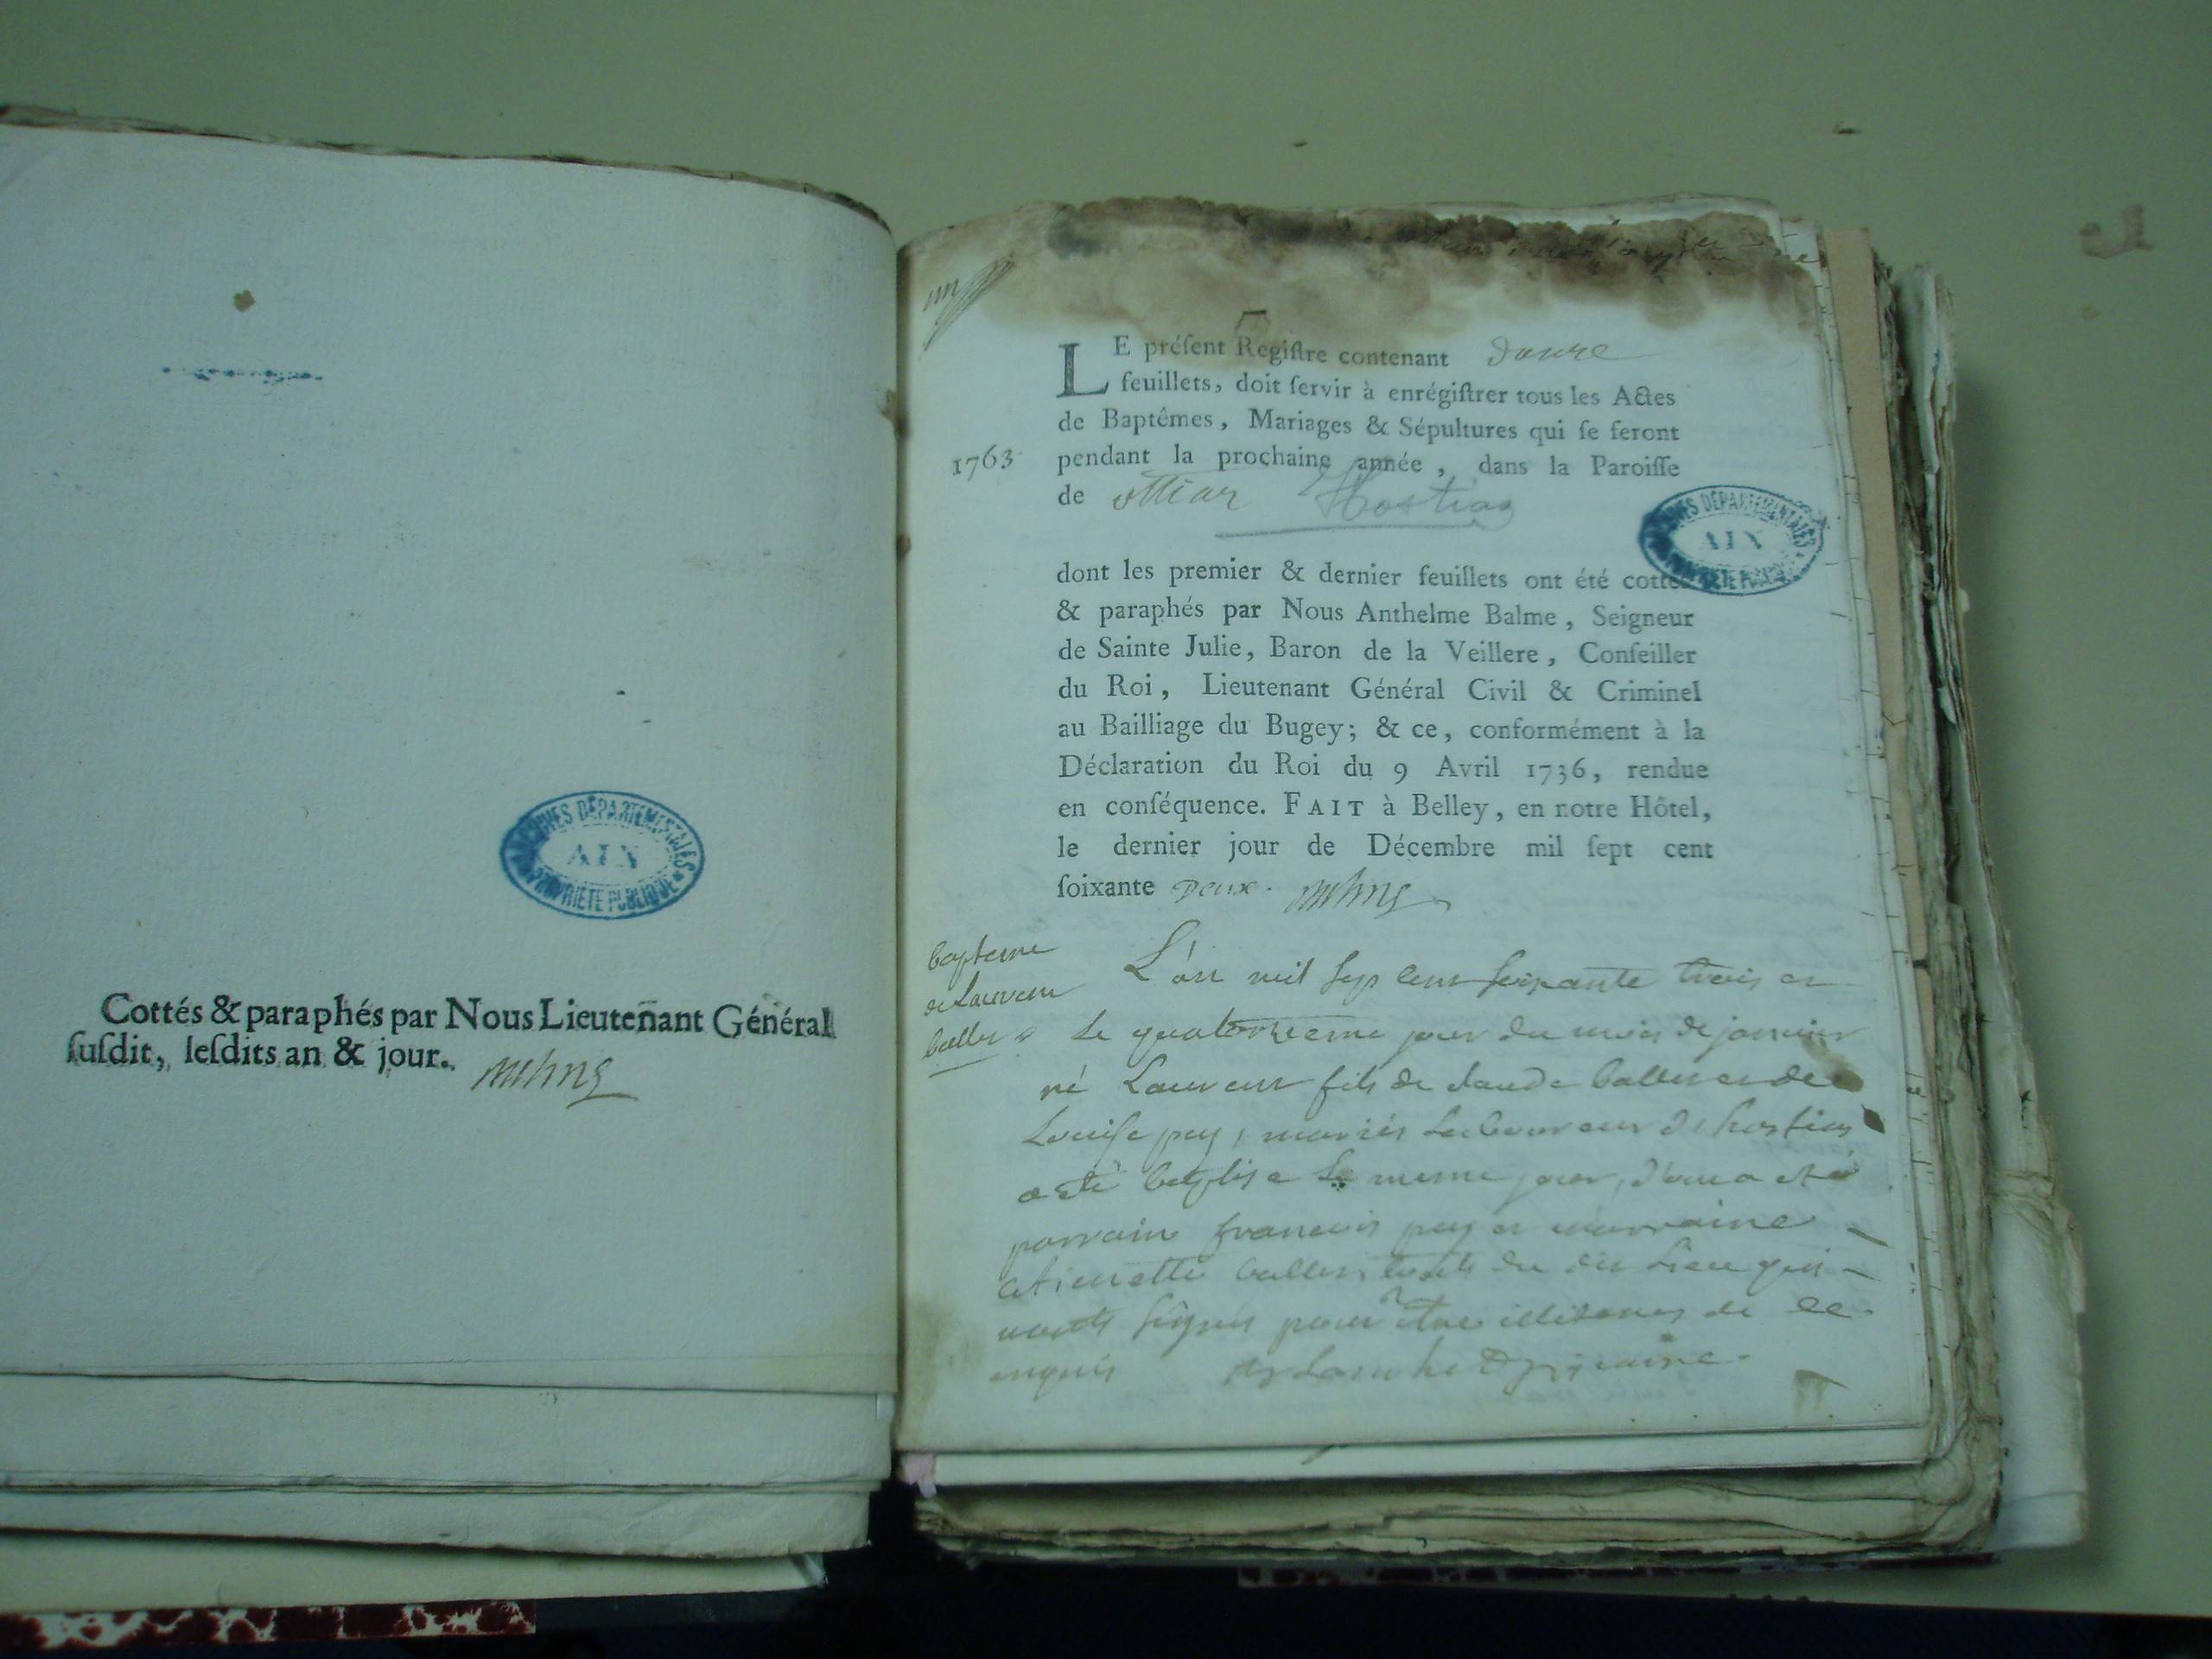 ARCHIVES DÉPARTEMENTALES
AIN
PROPRIÉTÉ PUBLIQUE
Cottés & paraphés par Nous Lieutenant Général
ſuſdit, leſdits an & jour.
LE préſent Regiſtre contenant douze
feuillets, doit ſervir à enrégiſtrer tous les Actes
de Baptêmes, Mariages & Sépultures qui ſe feront
1763 pendant la prochaine année, dans la Paroiſſe
de ottiaz Hostiaz
ARCHIVES DÉPARTEMENTALES
AIN
dont les premier & dernier feuillets ont été cottés
& paraphés par Nous Anthelme Balme, Seigneur
de Sainte Julie, Baron de la Veillere, Conſeiller
du Roi, Lieutenant Général Civil & Criminel
au Bailliage du Bugey; & ce, conformément à la
Déclaration du Roi du 9 Avril 1736, rendue
en conſéquence. FAIT à Belley, en notre Hôtel,
le dernier jour de Décembre mil ſept cent
ſoixante Deux.
bapteme
de Laurent
ballet
L'an mil sep cent soixante trois et
le quatorzieme jour du mois de janvier
né Laurent fils de claude ballet et de
Louise pey, mariés Laboureur d'hostias
a eté baptise le meme jour, d'ont a eté
parrain francois pey et marraine
etienette ballet, touts du dit Lieu qui
nonts signés pour etre illiteres de ce
enquis